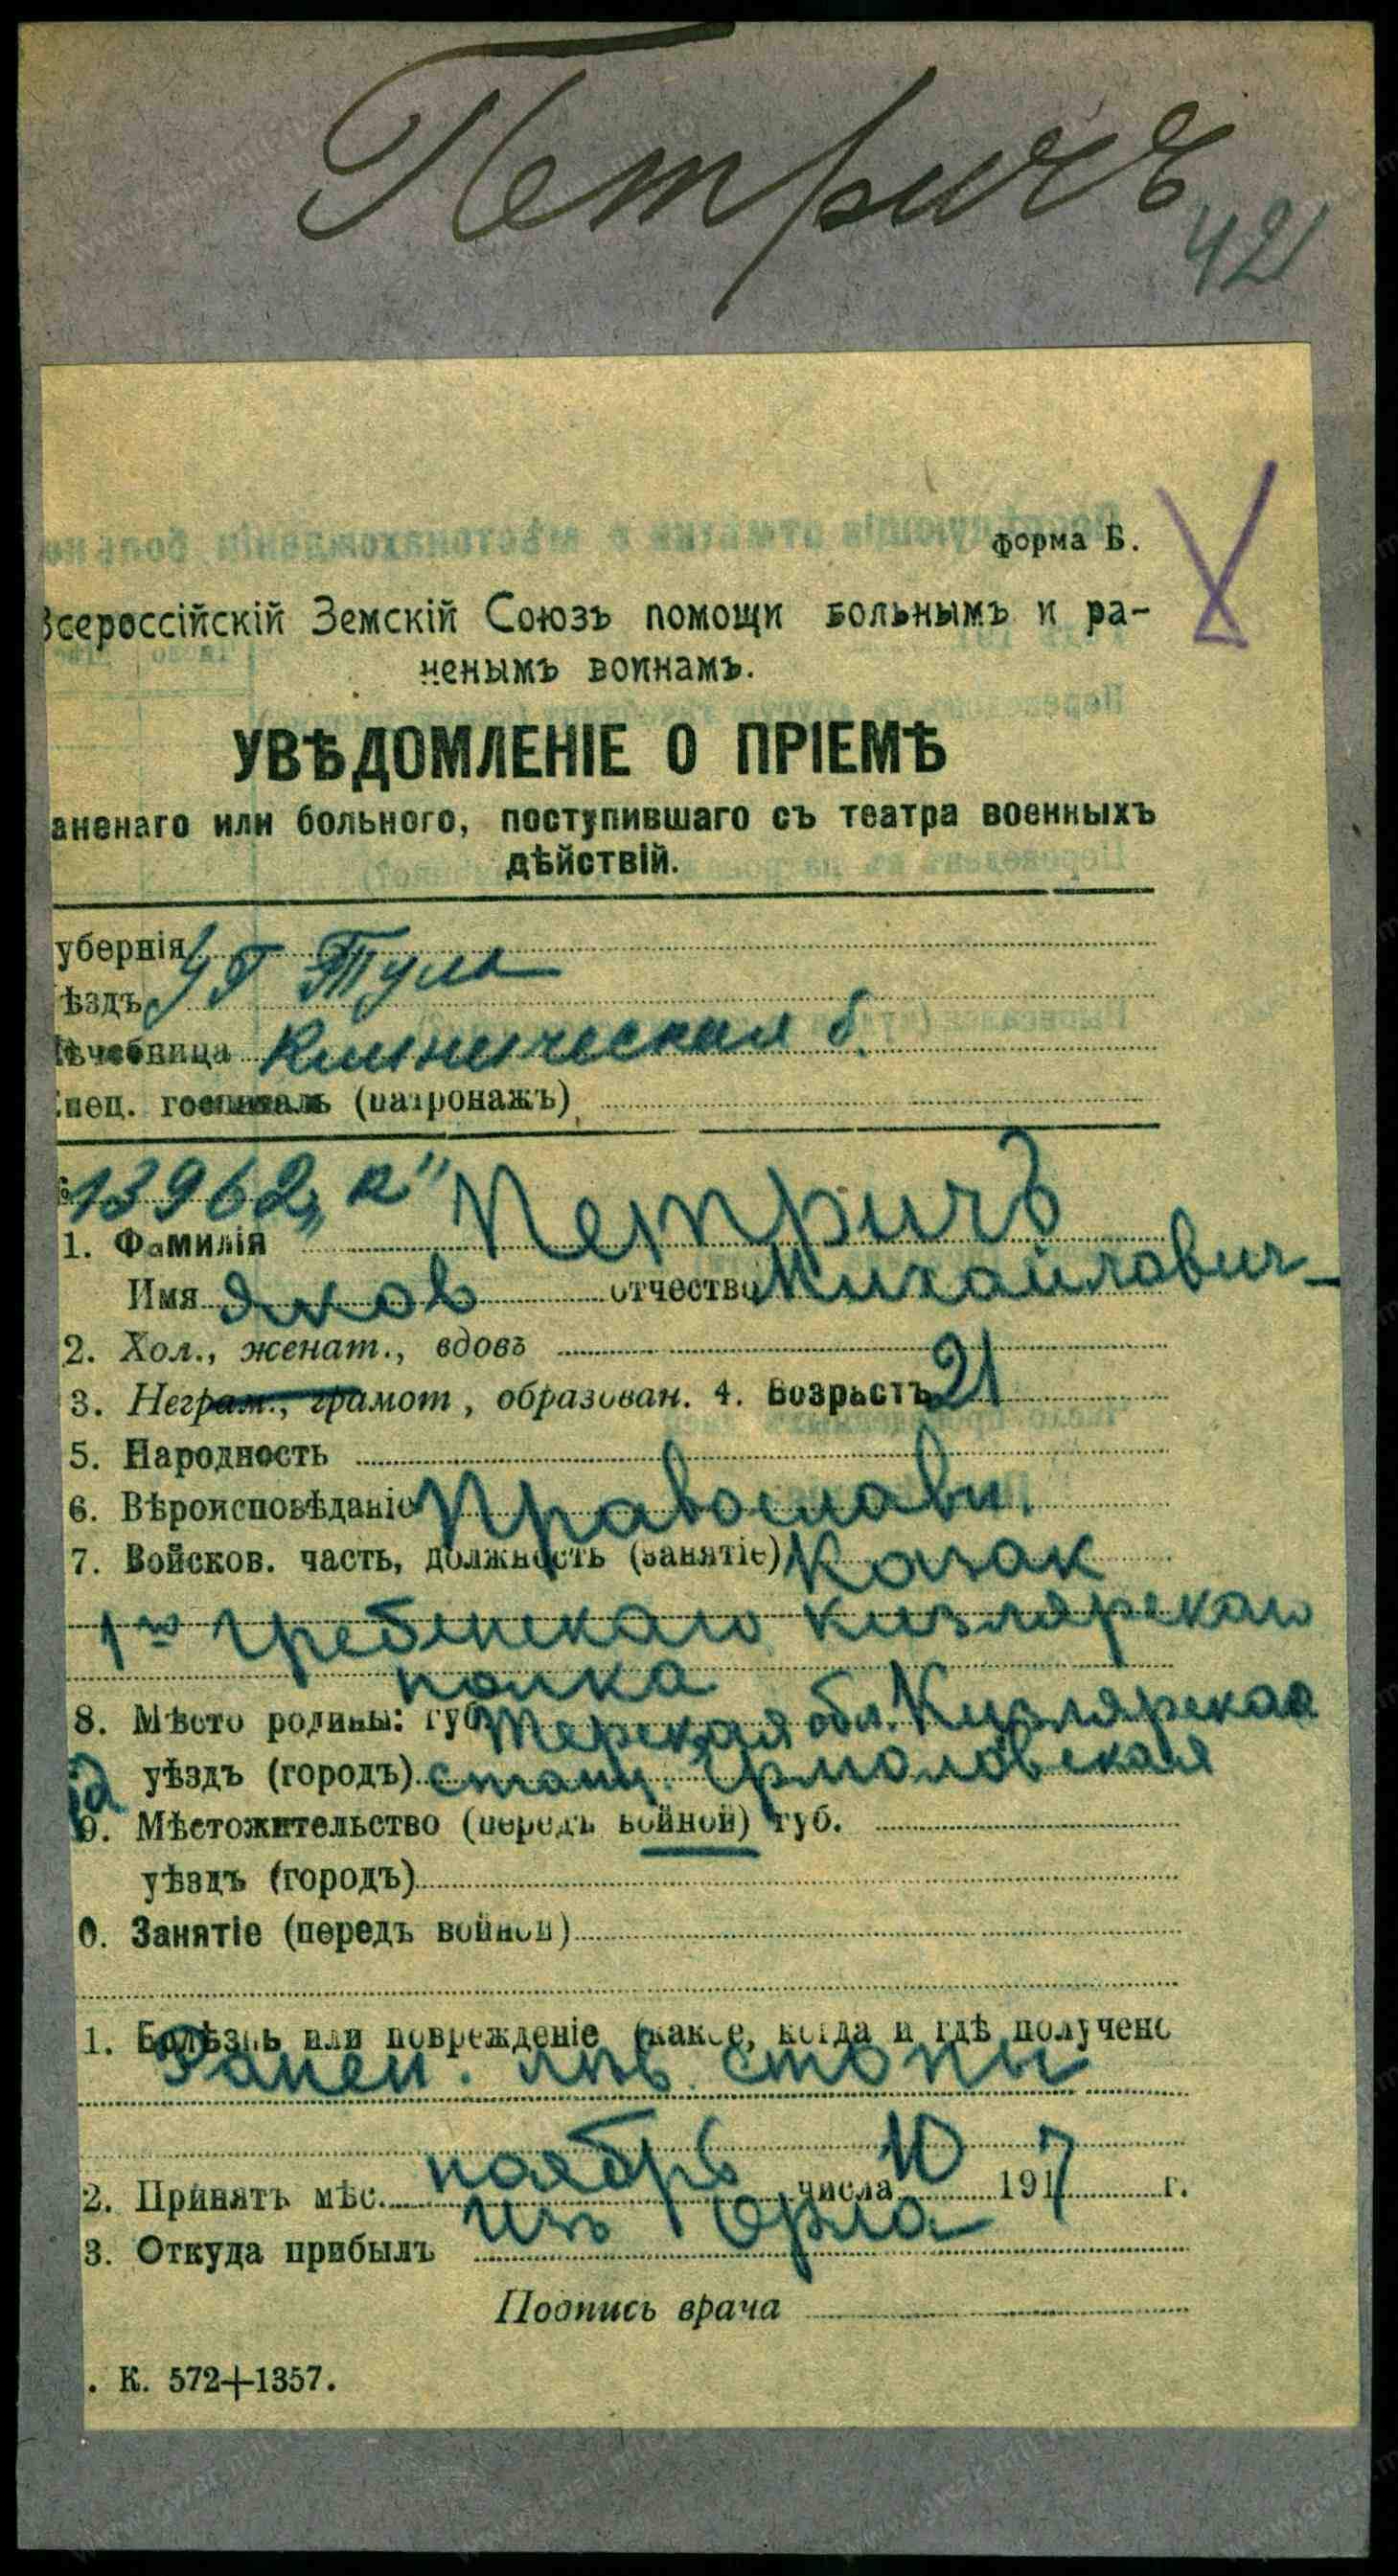 Петричъ
42
форма Б.
Всероссійскій Земскій Союзъ помощи больнымъ и ра-
ненымъ воинамъ.
УВѢДОМЛЕНІЕ О ПРІЕМѢ
аненаго или больного, поступившаго съ театра военныхъ
дѣйствій.
убернія
г Тула
ѣздъ
Лѣчебница Клиническая б.
Спец. госпиталь (патронажъ)
13962, к"
1. Фамилія Петричъ
Имя Яков отчество Михайлович
2. Хол., женат., вдовъ
3. Неграм., грамот, образован. 4. Возрастъ 21
5. Народность
6. Вѣроисповѣданіе Православн.
7. Войсков. часть, должность (занятіе) Козак
1го Гребенскаго Кизлярскаго
полка
8. Мѣсто родины: губ. Терская обл. Кизлярская
уѣздъ (городъ) станц. Ермоловская
9. Мѣстожительство (передъ войной) губ.
уѣздъ (городъ)
0. Занятіе (передъ войной)
1. Болѣзнь или поврежденіе (какое, когда и гдѣ получено
Ранен. лѣв. стопы
2. Принятъ мѣс. ноябрь числа 10 1917 г.
3. Откуда прибылъ Изъ Орла
Подпись врача
. К. 572+1357.